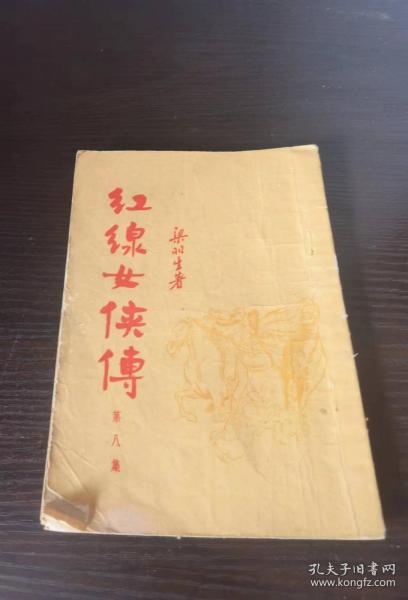 红線女俠傳
梁羽生著
第八集
孔夫子旧书网
www.kongfz.com